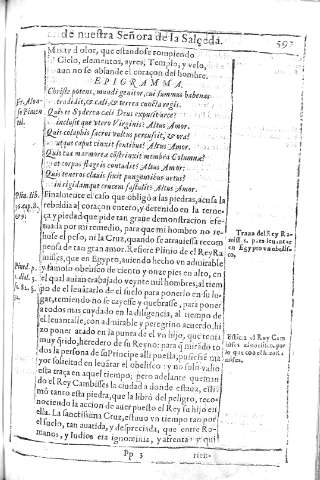 de nuestra Señora de la Salçeda. 597
Mixty dolor, que estandose rompiendo
Cielo, elementos, ayres, Templo, y velo,
aun no se ablande el coraçon del hombre.
EPIGRAMMA.
Christe potens, mundi genitor, cui summus habenas
tradidit, & cæli, & terræ cuncta regis.
Quis et Syderea cæli Deus expulit arce?
inclusit que vtero Virginis? Altus Amor.
Quis colaphis sacros vultus percussit, & ora?
vt que caput cinxit sentibus? Altus Amor.
Quis tua marmoreæ cõstrinxit membra Columnæ?
et corpus flagris contudit? Altus Amor.
Quis teneros clauis fixit pungentibus artus?
in rigidam que crucem sustulit? Altus Amor.
Finalmente el caso que obligó a las piedras, acusa la
rebeldia al coraçon entero, y detenido en la terne-
ça y piedad que pide tan graue demonstracion ese-
tuada por mi remedio, para que mi hombro no re-
huse el peso, ni la Cruz, quando se atrauiessa recom
pensa de tan gran amor. Refiere Plinio de el Rey Ra
misses, que en Egypto, auiendo hecho vn admirable
y famoso obelisco de ciento y onze pies en alto, en
el qual auian trabajado veynte mil hombres, al tiem
po de el leuãtarle do el suelo para ponerlo en su lu-
gar, temiendo no se cayesse y quebrasse, para poner
a todos mas cuydado en la diligencia, al tiempo de
el leuantalle, con admirable y peregrino acuerdo, hi
zo poner atado en la punta de el vn hijo, que tenia
muy q̃rido, heredero de su Reyno: para q̃ mirãdo to
dos la persona de su Principe alli puesta, pusiesse ma
yor solicitud en leuãtar el obelisco: y no solo valio
esta traça en aquel tiempo; pero adelante queman
do el Rey Cambisses la ciudad a donde estaua, esti-
mó tanto esta piedra, que la libró del peligro, reco-
nociendo la accion de auer puesto el Rey su hijo en
ella. La santissima Cruz, estuuo vn tiempo tan por
el suelo, tan auatida, y despreciada, que entre Ro-
manos, y Iudios era ignominia, y afrenta: y qui
Pp 3 rien-
Traça del Rey Ra
mises, para leuantar
en Egypto vn obelis-
co.